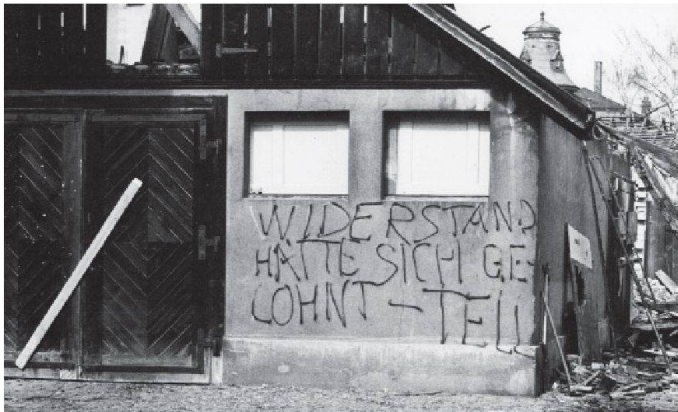 WIDERSTAND
HÄTTE SICH GE-
LOHNT - TELL